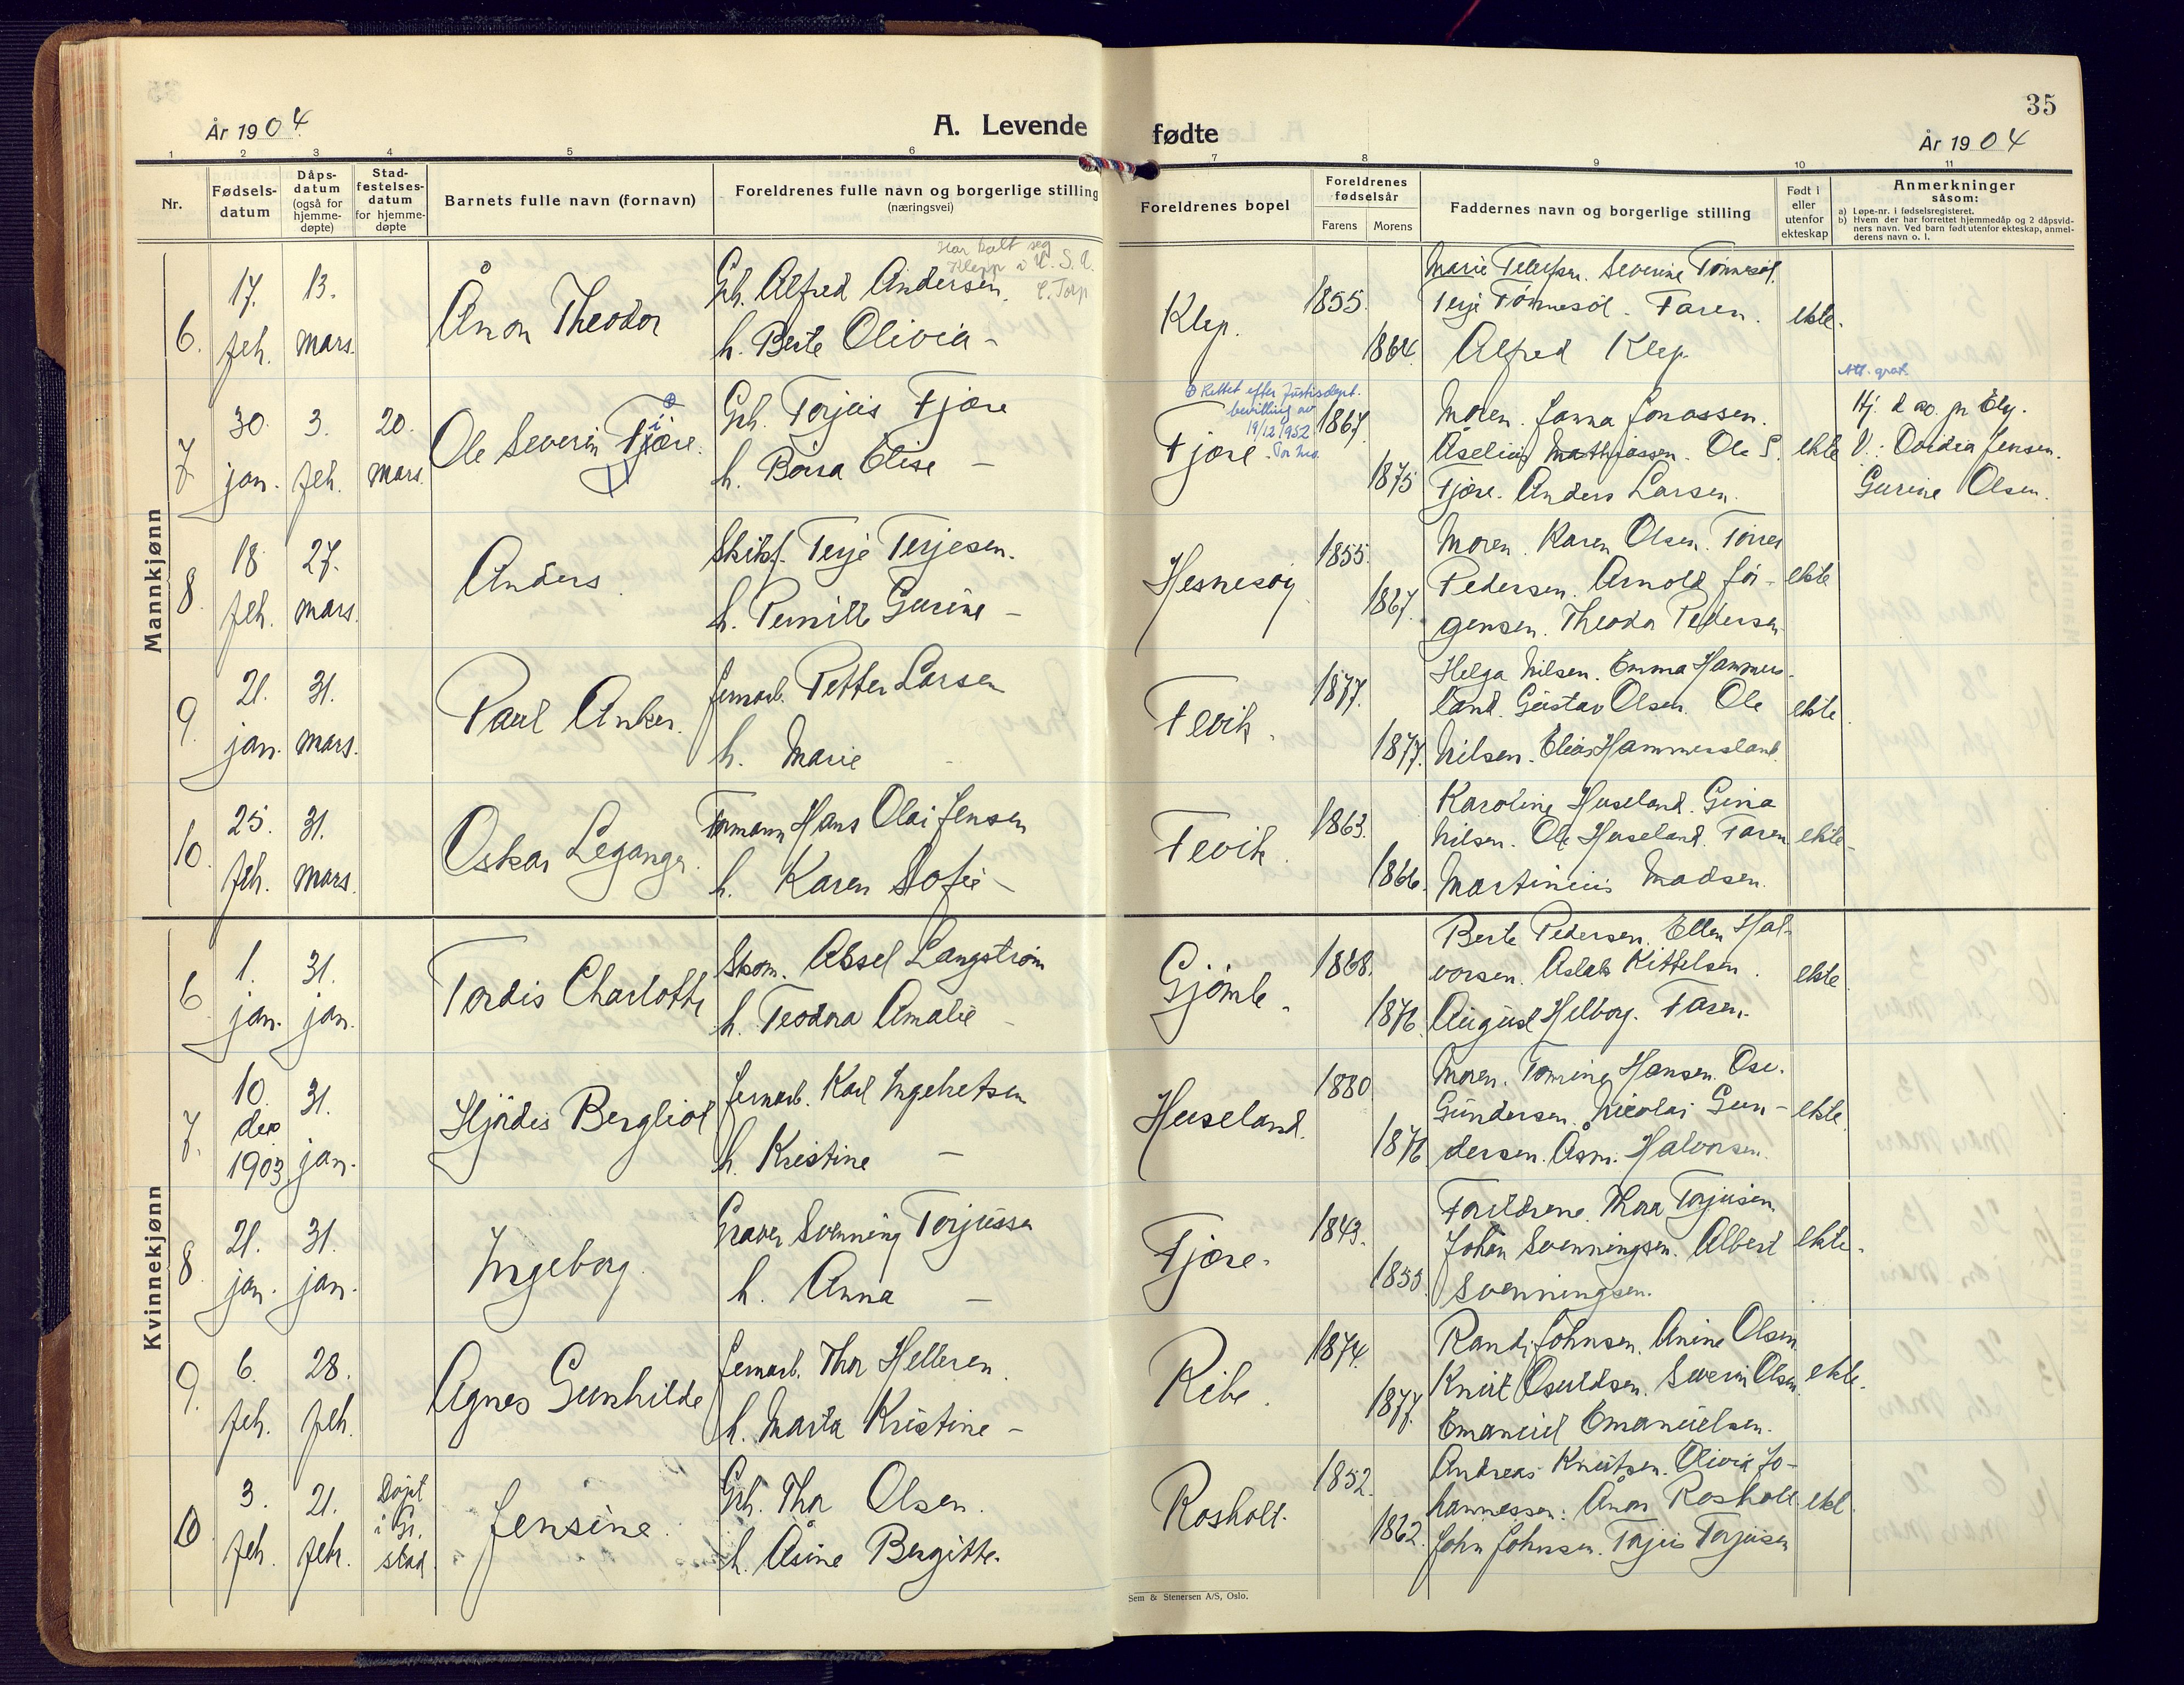 35
År 1904
A. Levende fødte
År 1904
1 2 3 4 5 6 7 8 9 10 11
Nr.
Fødsels-
datum
Dåps-
datum
(også for
hjemme-
døpte)
Stad-
festelses-
datum
for hjemme-
døpte
Barnets fulle navn (fornavn)
Foreldrenes fulle navn og borgerlige stilling
(næringsvei)
Foreldrenes bopel
Foreldrenes
fødselsår
Farens Morens
Faddernes navn og borgerlige stilling
Født i
eller
utenfor
ekteskap
Anmerkninger
såsom:
a) Løpe-nr. i fødselsregisteret.
b) Hvem der har forrettet hjemmedåp og 2 dåpsvid-
ners navn. Ved barn født utenfor ekteskap, anmel-
derens navn o. l.
Mannkjønn
6.
17.
feb.
13.
mars.
Ånon Theodor
Har kalt seg
Klepp i U.S.A.
Gb. Alfred Andersen.
h. Berte Olivia -
Klep.
1855.
1864.
Severine Tønnesøl.
Terje Tønnesøl. Faren.
Alfred Klep.
ekte.
7
30.
jan.
3.
feb.
20.
mars.
Ole Severin Fjære.
Gb. Torjus Fjære
h. Elise -
⊕ Rettet efter Justisdept.
bevilling av
19/12 1952
Fjære.
1867.
1875
Moren. Janna Jonassen.
Ole S.
Fjære. Anders Larsen.
ekte
Hj. d.
V: Jensen.
Gurine Olsen.
8.
18
feb.
27.
mars.
Anders.
Terje Terjesen.
h. Pernille Gurine -
Hesnesøy
1855.
1867.
Moren. Karen Olsen. Torres
Pedersen. Arnold Jør-
gensen. Theodor Pedersen
ekte
9.
21.
jan.
31.
mars.
Paul Anker.
Jernarb. Petter Larsen
h. Marie
Fevik.
1877.
1877.
Helga Nilsen. Emma Hammers-
land. Gustav Olsen. Ole
Nilsen. Elias Hammersland.
ekte.
10.
25.
feb.
31.
mars.
Oskar Leganger.
Formann Hans Olai Jensen
h. Karen Sofie -
Fevik.
1863.
1866.
Karoline Huseland. Gina
Nilsen. Ole Huseland. Faren
Martinius Madsen.
ekte.
Kvinnekjønn
6
1.
jan.
31.
jan.
Tordis Charlotte
Skom. Aksel Langstrøm
h. Teodora Amalie -
Gjømle.
1868.
1876.
Berte Pedersen. Ellen Hal-
vorsen. Aslak Kittelsen.
August Helborg. Faren.
ekte
7.
10.
des
1903.
31.
jan.
Hjördis Bergliot
Jernarb. Karl Ingebretsen
h. Kristine -
Huseland.
1880
1876.
Moren. Tomine Hansen. Ose.
Gundersen. Nicolai Gun-
dersen. Åsm. Halvorsen.
ekte.
8
21.
jan.
31.
jan.
Ingeborg.
Graver Svenning Torjussen
h. Anna -
Fjære.
1843.
1855.
Foreldrene. Thora Torjusen.
Johan Svenningsen. Albert
Svenningsen.
ekte.
9.
6.
feb.
28.
feb.
Agnes Gunhilde
Jernarb. Thor Helleren.
h. Marta Kristine -
Ribe.
1874.
1877.
Randi Johnsen. Anine Olsen
Knut Osuldsen. Severin Olsen.
Emanuel Emanuelsen.
ekte.
10
3.
feb.
21.
febr.
Døpt
i Gr.
stad.
Jensine.
Gb. Thor Olsen.
h. Åsine Bergitte.
Rosholt.
1852.
1862.
Andreas Knutsen. Olivia Jo-
hannessen. Ånon Rosholt.
John Johnsen. Torjus Torjusen
ekt.
Sem & Stenersen A/S, Oslo.